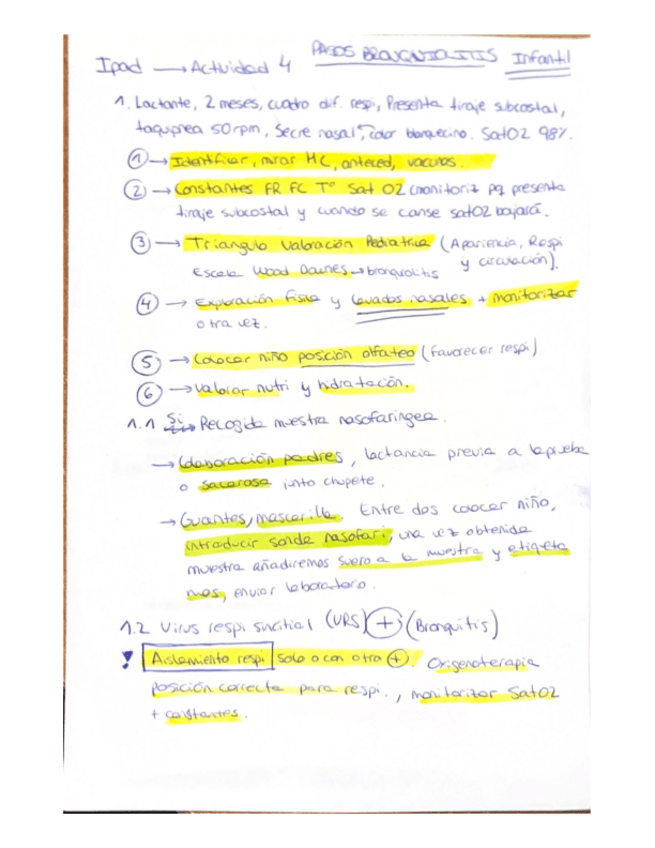 Ipad → Actividad 4 PASOS BRONQUIOLITIS Infantil
1. Lactante, 2 meses, cuadro dif. respi, Presenta tiraje subcostal,
taquipnea 50rpm, Secre nasal, color blanquecino. SatO2 98%.
① → Identificar, mirar HC, anteced, vacunas.
② → Constantes FR FC Tº Sat O2 (monitoriz pq presenta
tiraje subcostal y cuando se canse satO2 bajará.
③ → Triangulo Valoración Pediatrica (Apariencia, Respi
Escala Wood Downes → bronquiolitis y circulación).
④ → Exploración física y lavados nasales + monitorizar
otra vez.
⑤ → Colocar niño posición olfateo (favorecer respi)
⑥ → Valorar nutri y hidratación.
1.1 Si Recogida muestra nasofaringea.
→ Colaboración padres, lactancia previa a la prueba
o sacarosa junto chupete.
→ Guantes, mascarilla. Entre dos colocar niño,
introducir sonda nasofari, una vez obtenida
muestra añadiremos suero a la muestra y etiqueta
mos, enviar laboratorio.
1.2 Virus respi sincitial (VRS) + (Bronquitis)
! Aislamiento respi solo o con otra +. Oxigenoterapia
posición correcta para respi., monitorizar SatO2
+ constantes.